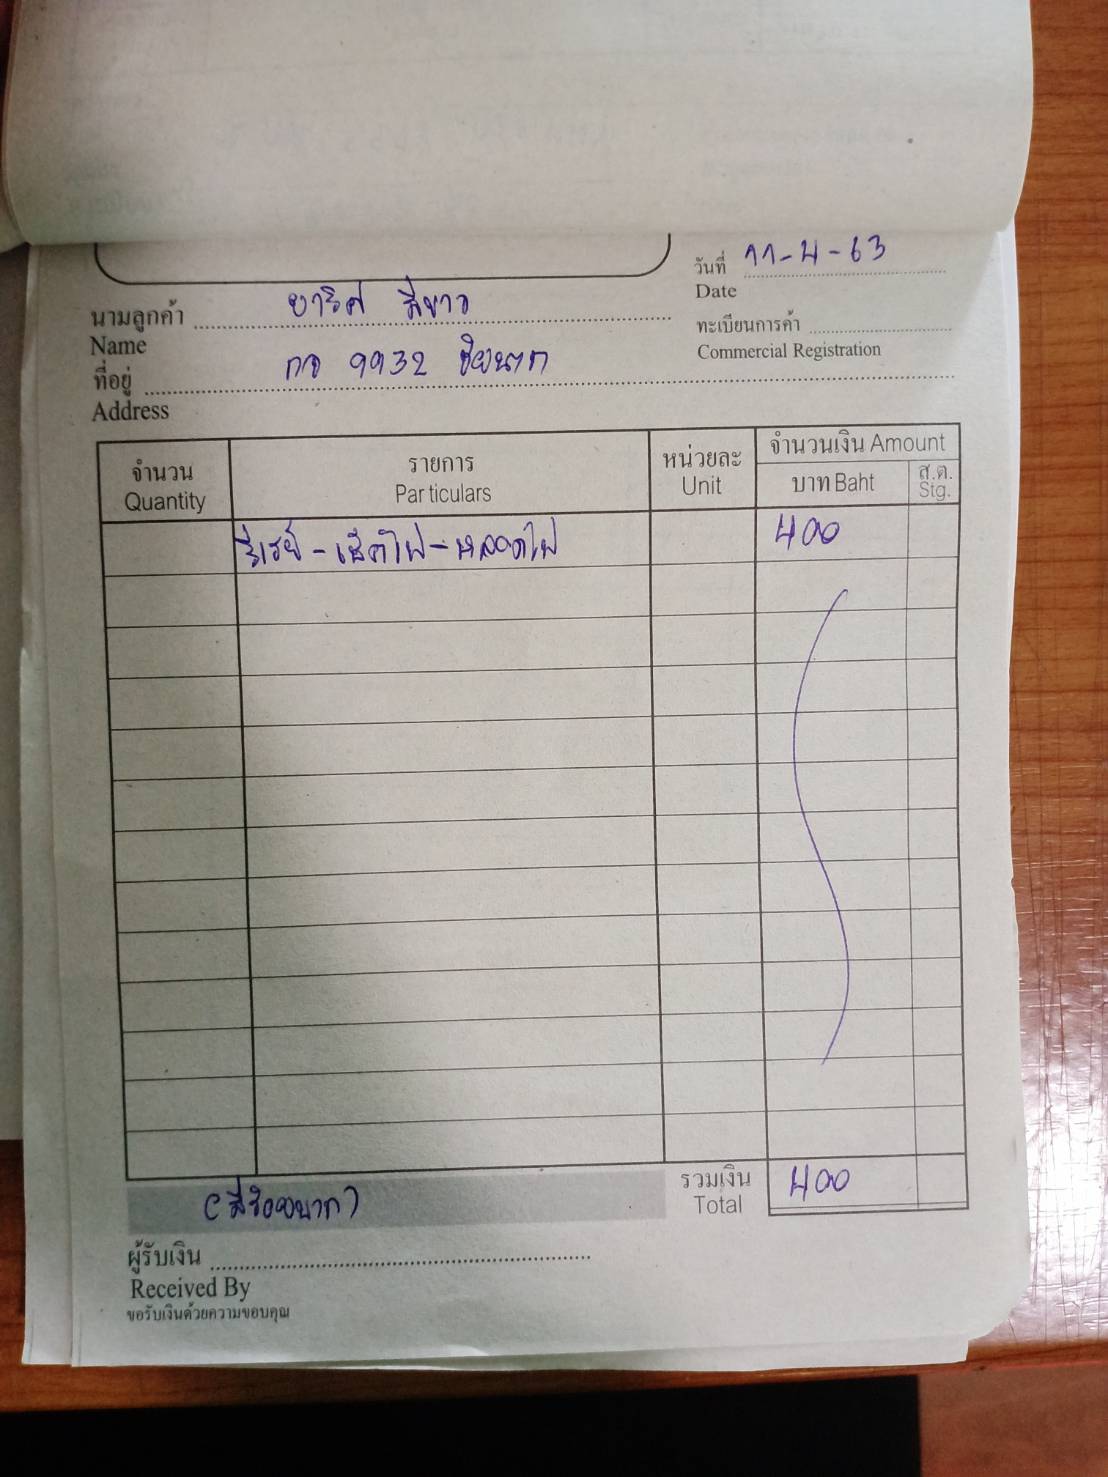 วันที่ 11-4-63
Date
นามลูกค้า ยาริศ สีขาว
Name
ทะเบียนการค้า
Commercial Registration
ที่อยู่ กจ 9932
Address
จำนวน รายการ หน่วยละ จำนวนเงิน Amount
Quantity Particulars Unit บาท Baht ส.ต. Stg.
รีเรย์ - เช็คไฟ - หลอดไฟ 400
(สี่ร้อยบาท) รวมเงิน 400
Total
ผู้รับเงิน
Received By
ขอรับเงินด้วยความขอบคุณ